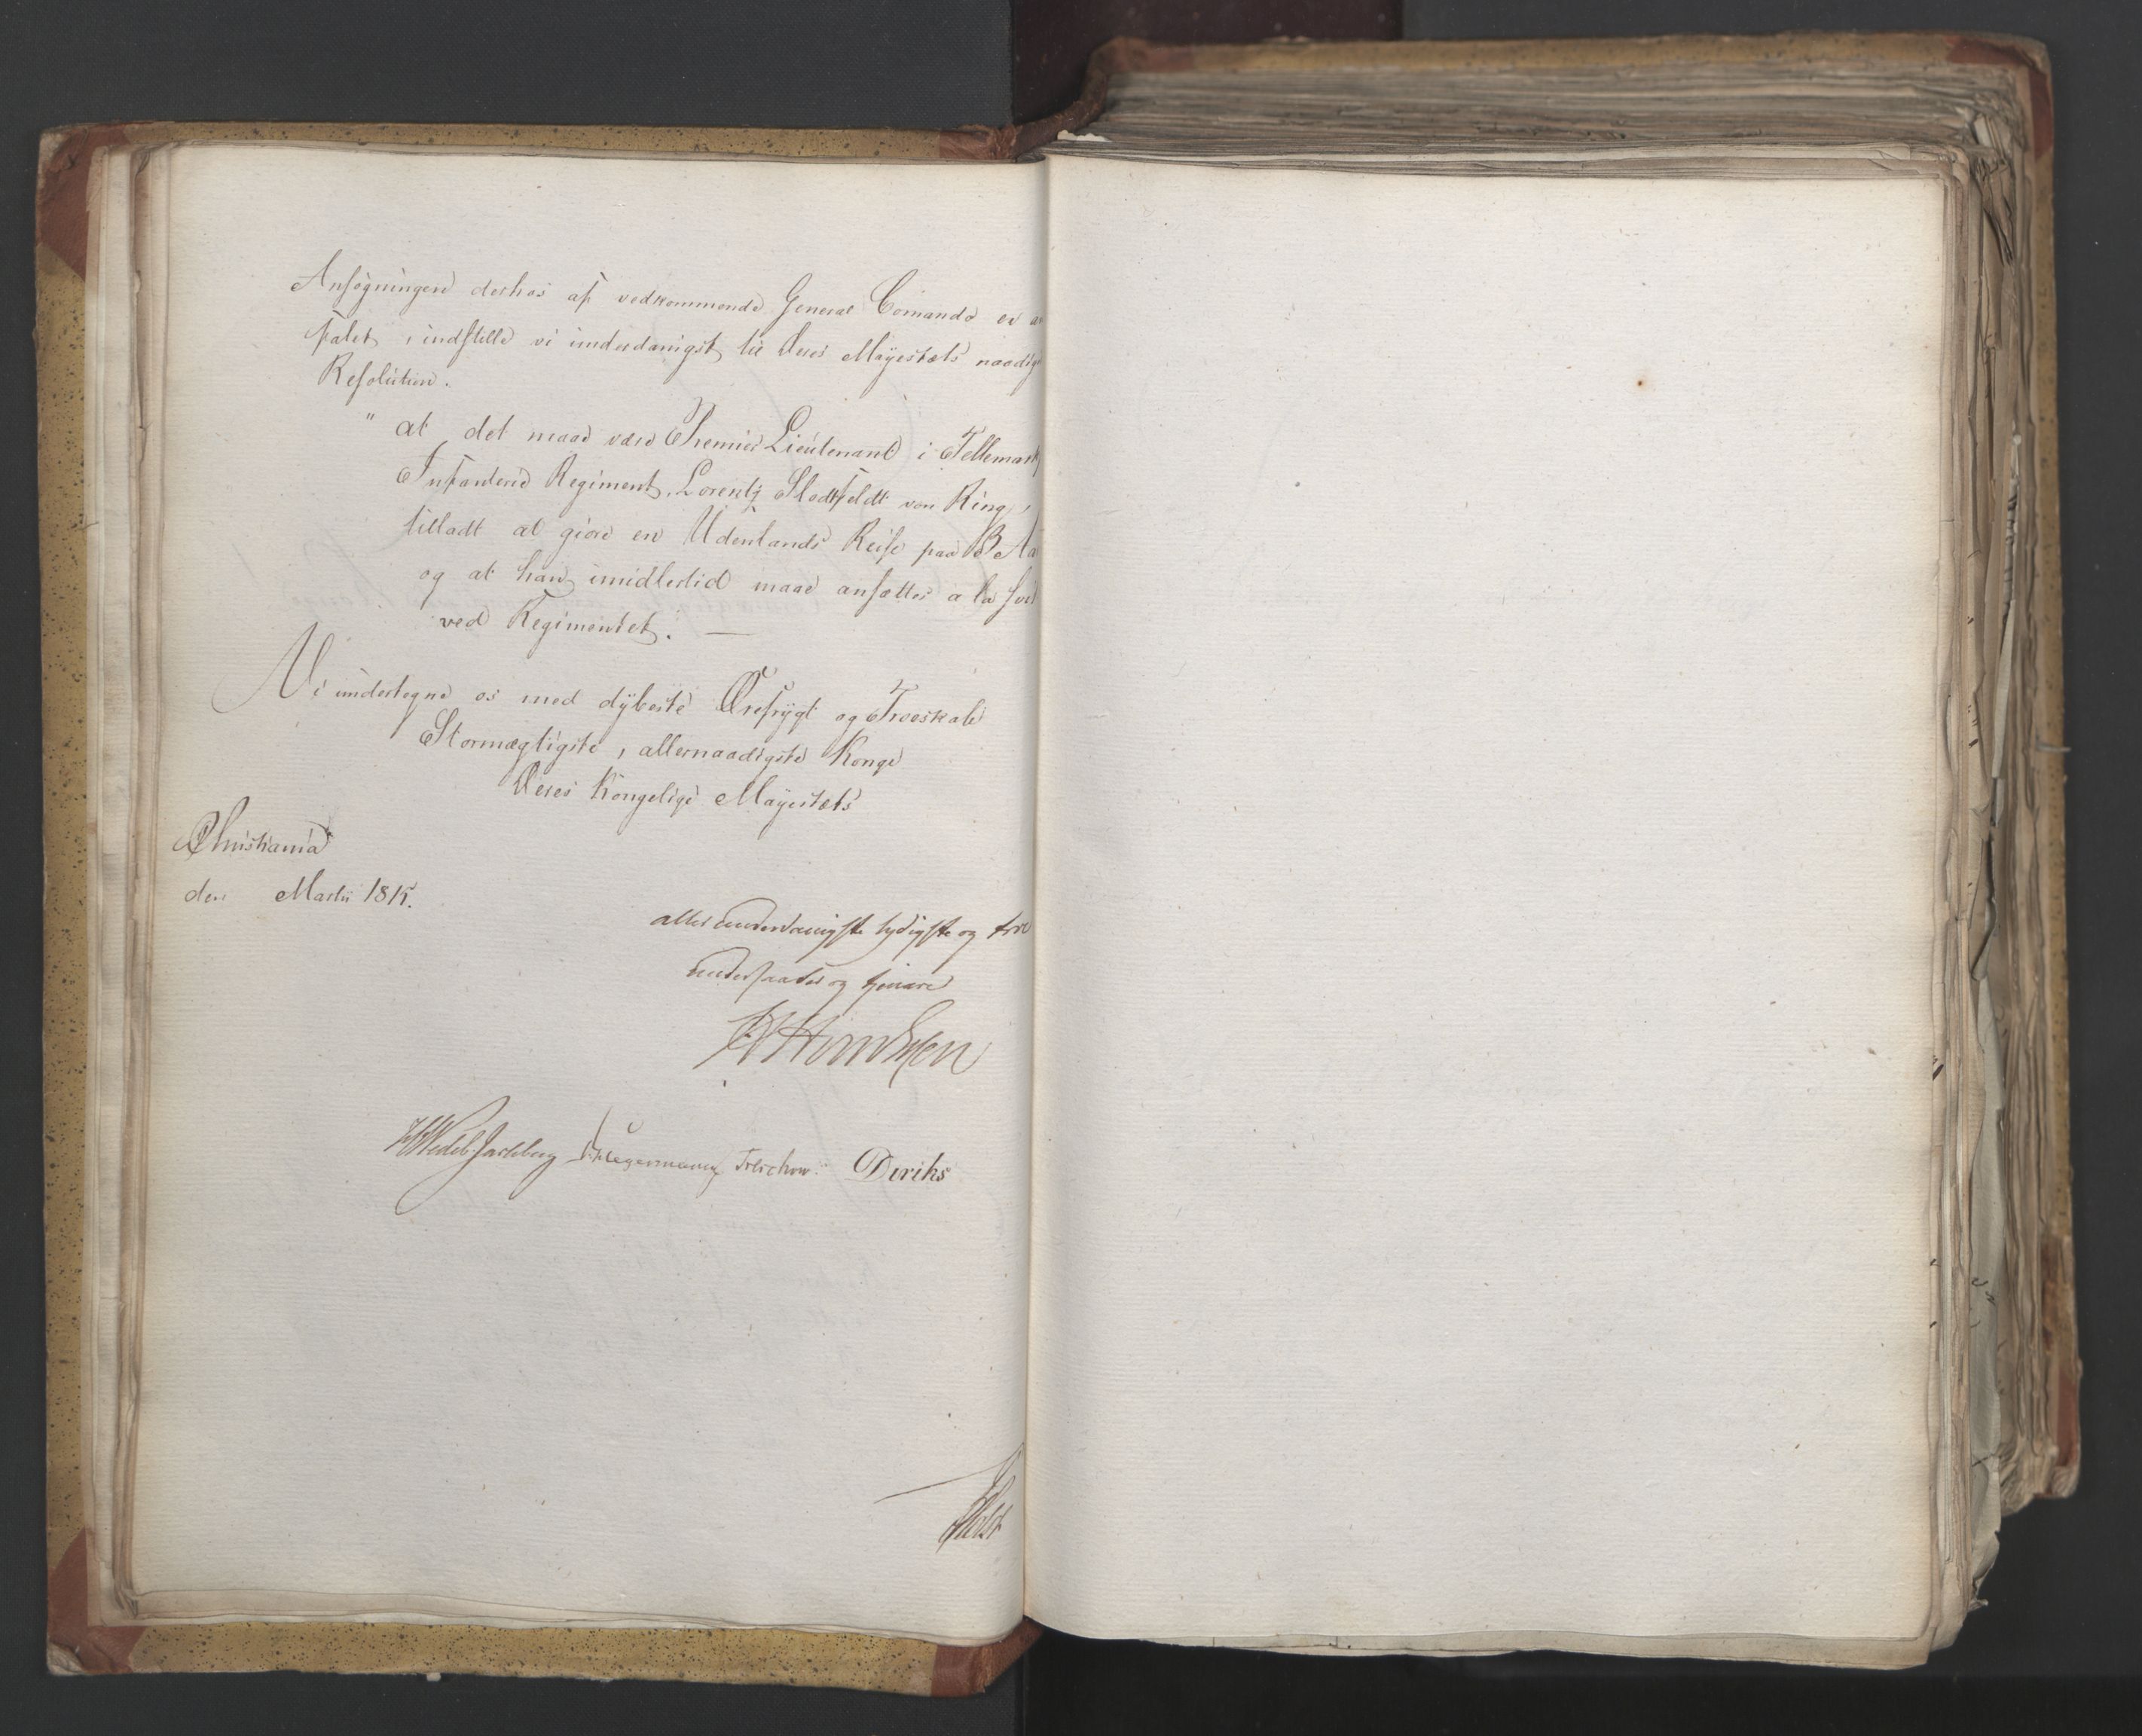 Ansøgningen derhos af vedkommende General Comando er an
falet, indstille vi underdanigst til Deres Mayestæts naadig
Resolution.
" at det maae være Premier Lieutenant i Tellemark
Infanterie Regiment, Lorentz Slodtfeldt von Ring,
tilladt at giøre en Udenlands Reise paa 3 Aa
og at han imidlertid maae ansættes a la suit
ved Regimentet. —
Vi undertegne os med dybeste Ærefrygt og Troeskab
Stormægtigste, allernaadigste Konge
Deres Kongelige Mayestæts
Christiania
den Martii 1815.
allerunderdanigste lydigste og troe
undersaatter og tjenere
HWedel Jarlsberg Hegermann Treschow. Diriks
Holst